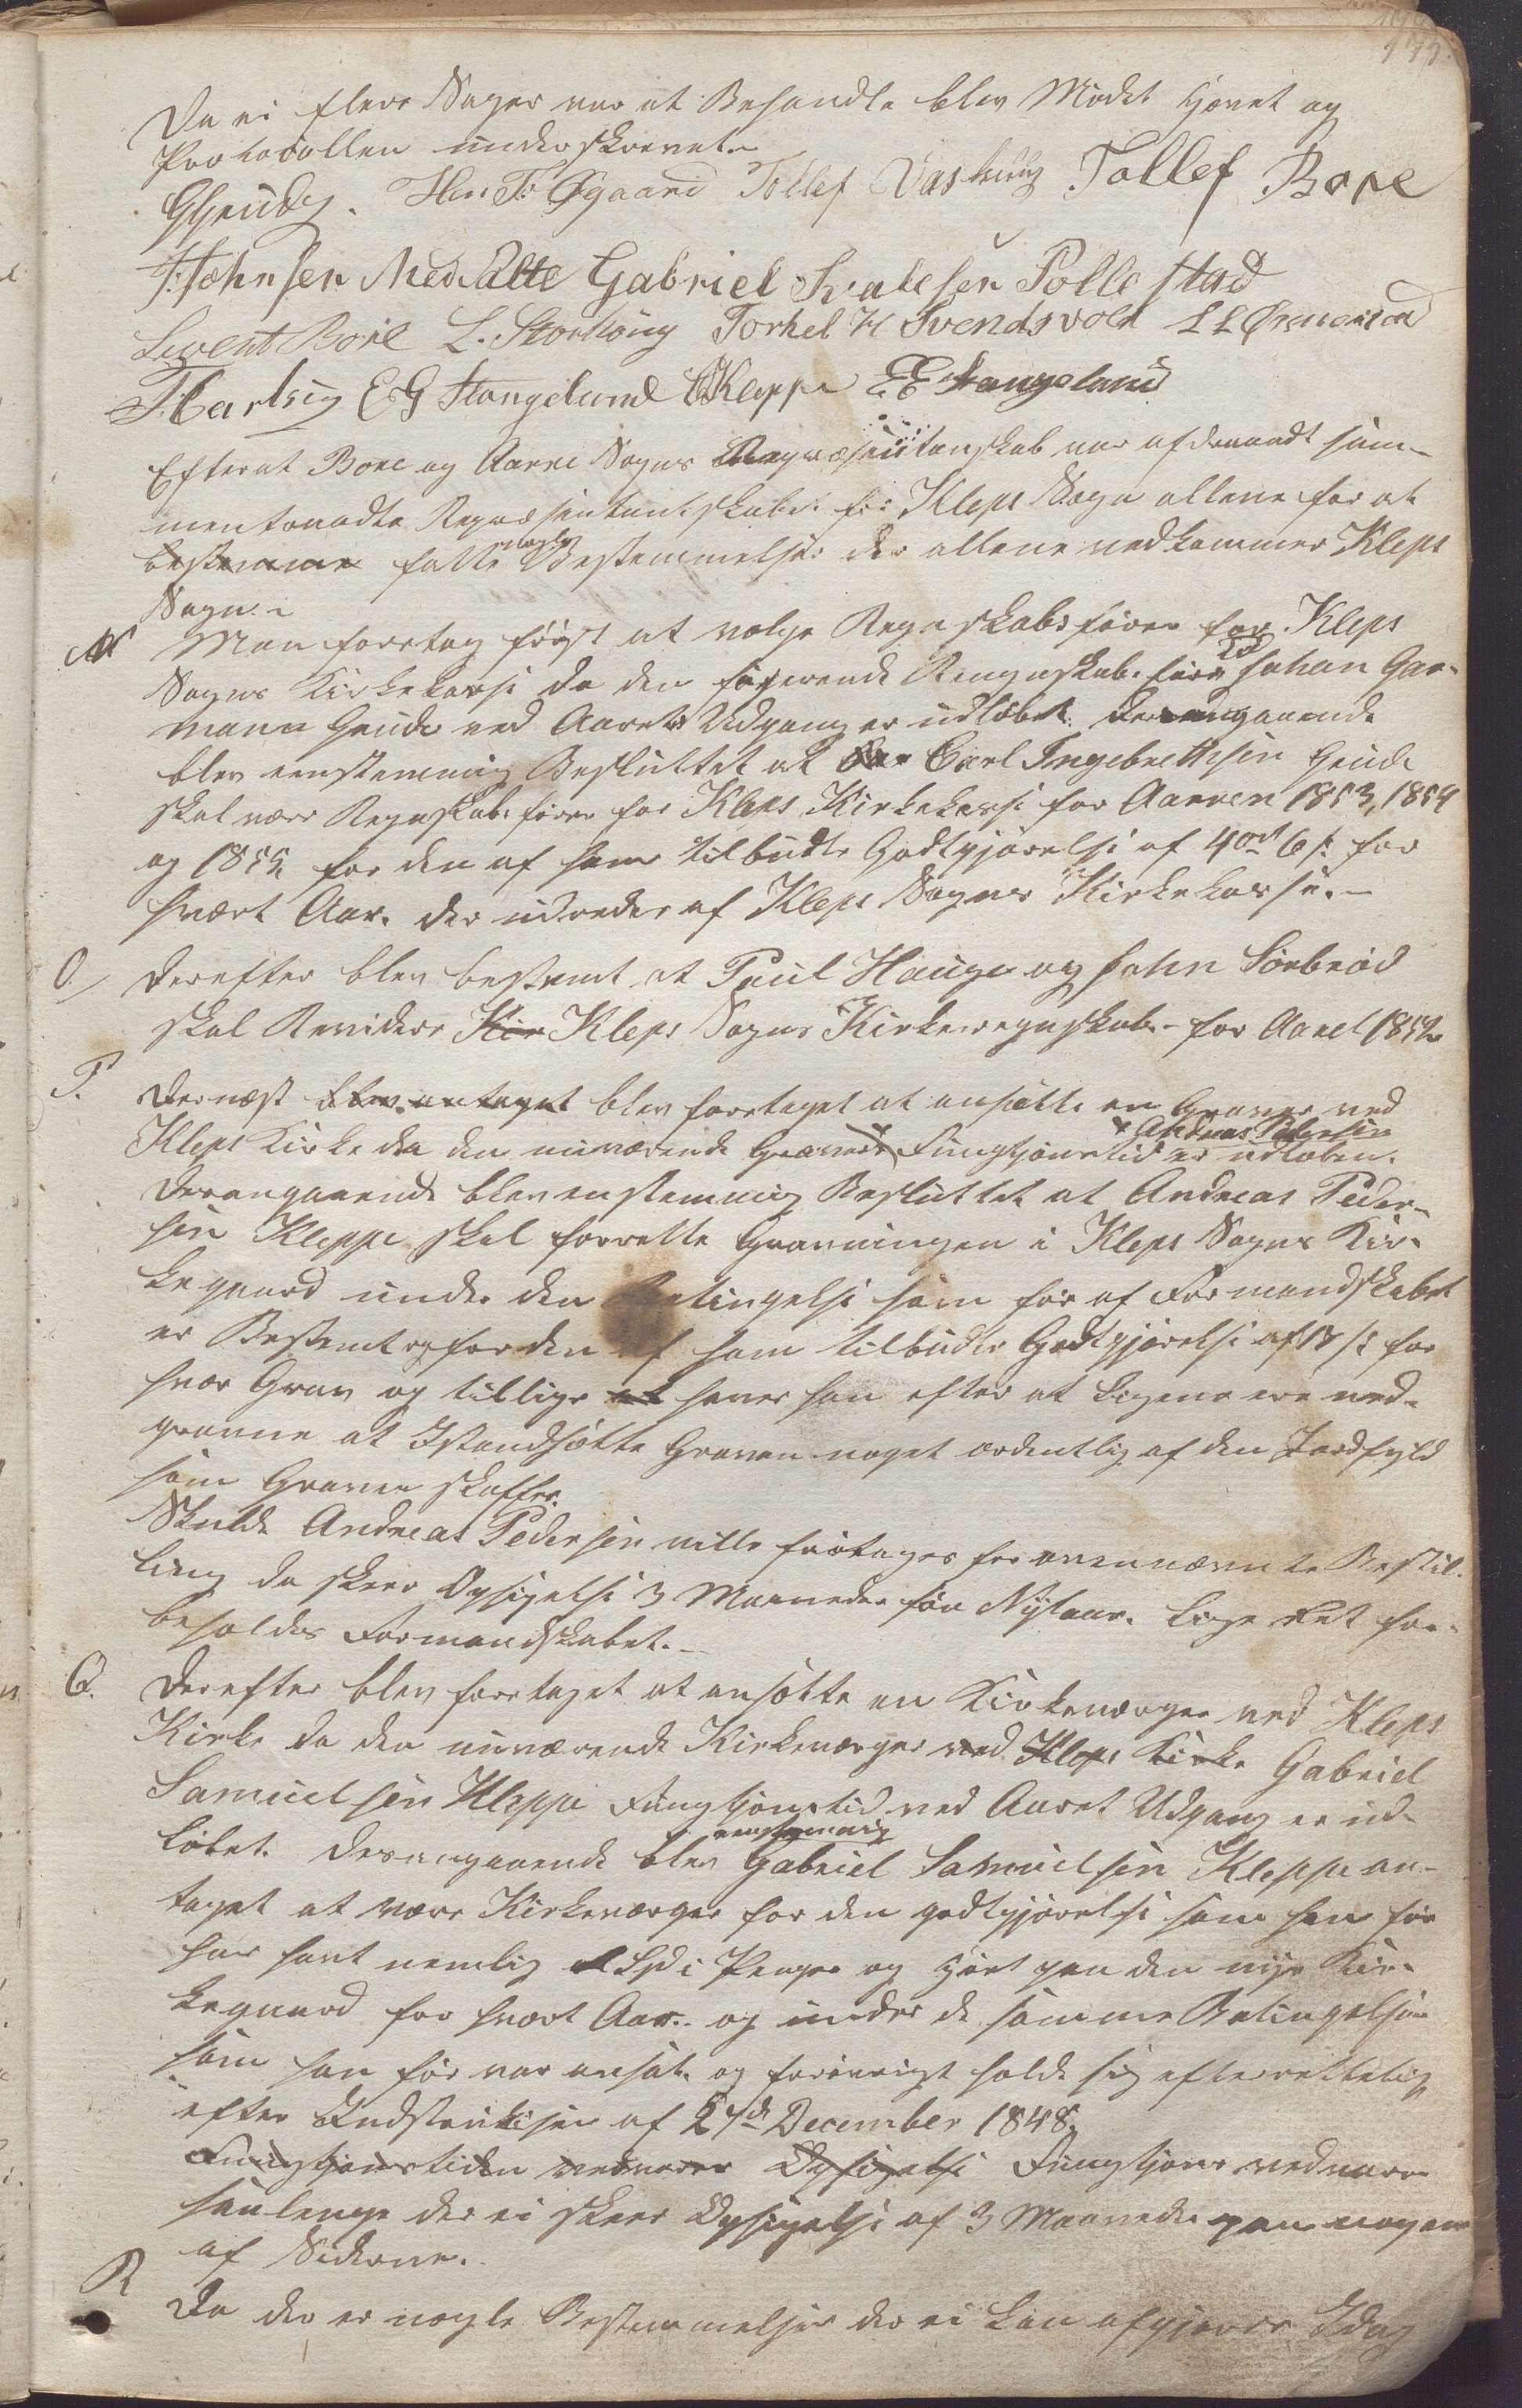 Da ei flere Sager var at Behandle blev Mödet hævet og
Protocollen underskrevet.
GGrude. Hen. T. Øgaard Tollef Vasthuug Tollef Bore
J. Johnsen Med Satte Gabriel Svalesen Pollestad
Sivert Bore L. Storhoug Torkel H Svendsvold L L Orneland
T. Carlsen E G Stangeland Kleppe E E Stangeland
Efter at Bore og Aarre Sogns Repræsentanskab var afdraadt sam-
mentraadte Repræsentantskabet for Kleps Sogn allene for at
bestemme fatte nogle Bestemmelser der allene vedkommer Kleps
Sogn.
N Man foretog först at vælge Regnskabsförer for Kleps
Sogns Kirkekasse da den fugerende Rengnskabsförer Johan Gar-
mann Grude ved Aarets Udgang er udlöbet. Derangaaende
blev eenstemmig Besluttet at Carl Ingebrettesen Grude
skal være Regnskabsförer for Kleps Kirkekasse for Aarren 1853, 1854
og 1855 for den af ham tilbudte Godtgjörelse af 4 ort 6 s. for
hvært Aar. der udredes af Kleps Sogns Kirkekasse.-
O. Derefter blev bestemt at Paul Hauge og John Sörbröd
skal Revidere Kir Kleps Sogns Kirkeregnskab- for Aaret 1852.
P. Dernæst blev antaget blev foretaget at ansætte en Graver ved
Andreas Pedersen
Kleps Kirke da den nuværende Gravers Fungtjonstid er udlöben.
Derangaaende blev enstemmig Besluttet at Andreas Peder-
sen Kleppe skal forrette Gravningen i Kleps Sogns Kir-
kegaard under den Betingelse som för af Formandskabet
er Bestemt og for den af ham tilbudte Godtgjörelse af 18 s. for
hver Grav og tillige at haver han efter at Ligene ere ned-
gravne at Istandsætte Graven noget ordentlig af den Jordfyld
som Graven skaffer.
Skulde Andreas Pedersen ville fratages for ovennævnte Bestil-
ling da skeer Opsigelse 3 Maaneder för Nytaar. Lige Ret for-
beholdes Formandskabet.-
Q. Derefter blev foretaget at ansætte en Kirkeværger ved Kleps
Kirke da den nuværende Kirkeværger ved Kleps Kirke Gabriel
Samuelsen Kleppe Fungtjonstid ved Aaret Udgang er ud-
löbet. Derangaaende blev eenstemmig Gabriel Samuelsen Kleppe an-
taget at være Kirkeværger for den godtgjörelse som han för
har havt nemlig Spd i Penge og Höet paa den nye Kir-
kegaard for hvært Aar. og under de samme Betingelser
som han för var ansat. og forövrigt holde sig efterrettelig
efter Indstruksen af 27de December 1848.
Fungtjonstiden vedvarer Opsigelse Fungtjons vedvarer
saalenge der ei skeer Opsigelse af 3 Maaneder paa nogen
af Siderne.
R Da der er nogle Bestemmelser der ei kan afgjöres Idag